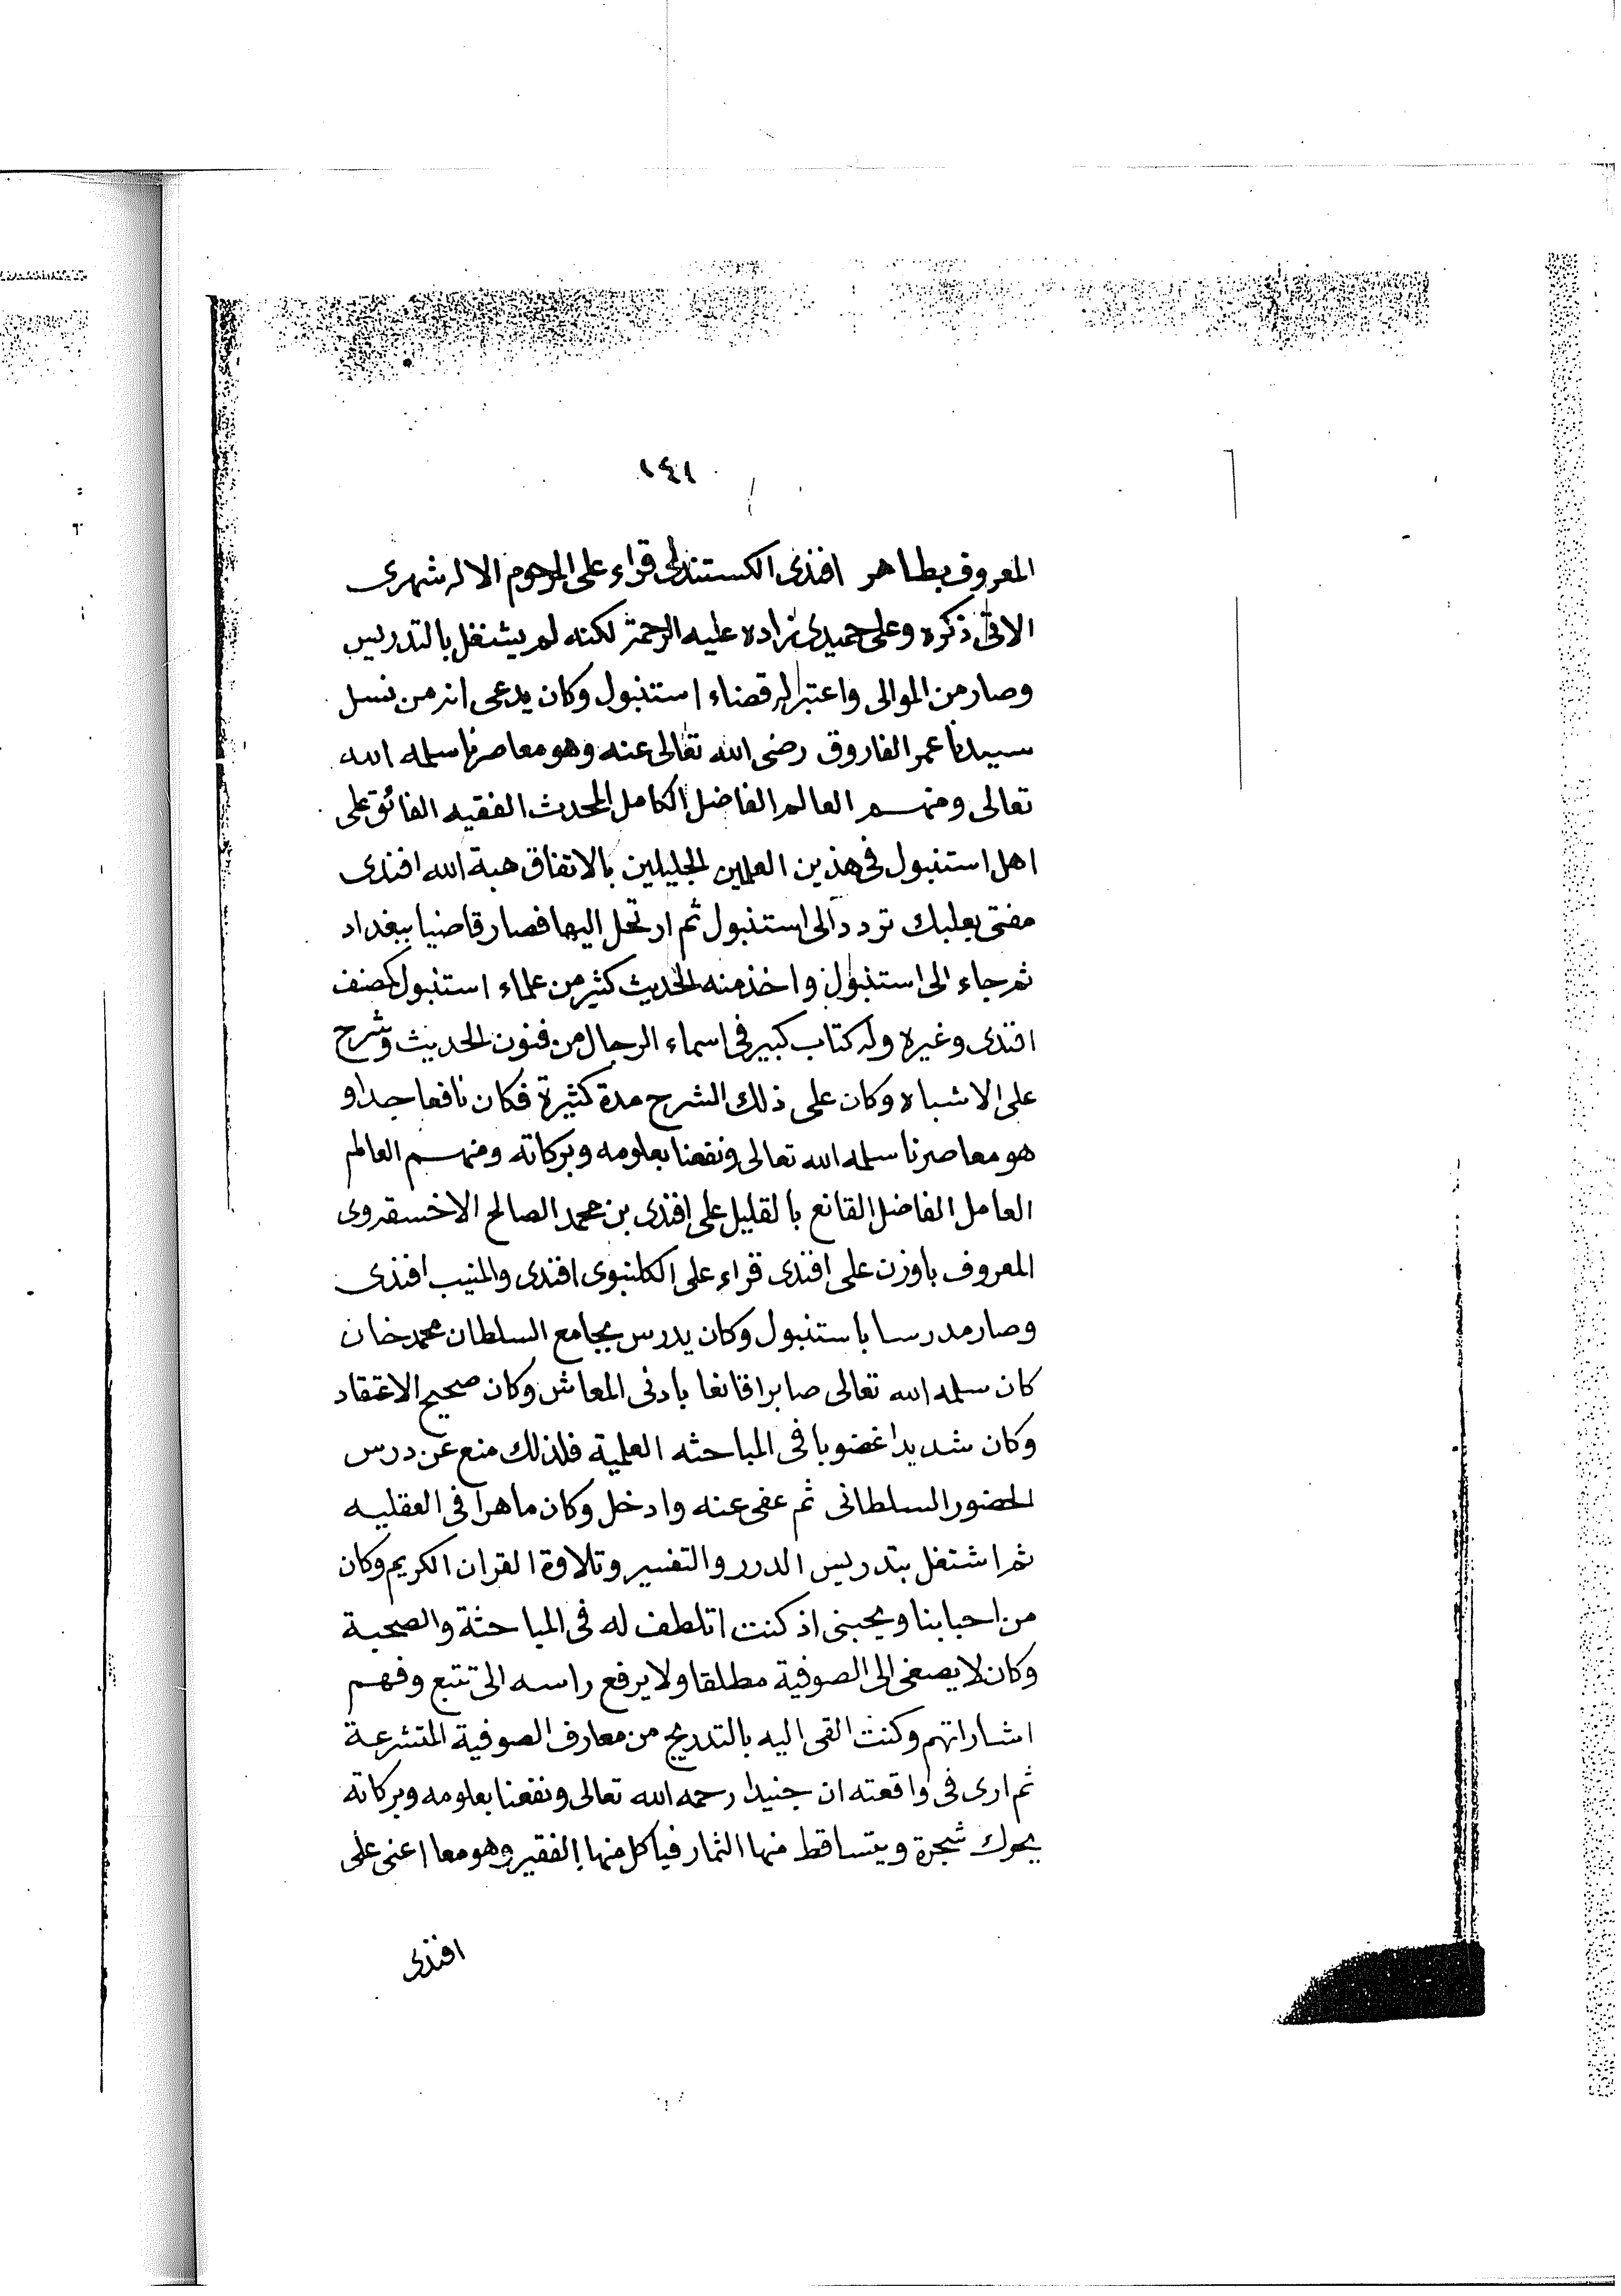 ١٤١
المعروف بطاهر افندى الكستندلى قراء على المرحوم الاله شهرى
الاتى ذكره وعلى حميدى زاده عليه الرحمة لكنه لم يشتغل بالتدريس
وصار من الموالى واعتبر له قضاء استنبول وكان يدعى انه من نسل
سيدنا عمر الفاروق رضى الله تعالى عنه وهو معاصرنا سلمه الله
تعالى ومنهم العالم الفاضل الكامل المحدث الفقيه الفائق على
اهل استنبول فى هذين العلمين الجليلين بالاتفاق هبة الله افندى
مفتى بعلبك تردد الى استنبول ثم ارتحل اليها فصار قاضيا ببغداد
ثم جاء الى استنبول واخذ منه الحديث كثير من علماء استنبول كمصنف
افندى وغيره وله كتاب كبير فى اسماء الرجال من فنون الحديث وشرح
على الاشباه وكان على ذلك الشرح مدة كثيرة فكان نافعا جدا و
هو معاصرنا سلمه الله تعالى ونفعنا بعلومه وبركاته ومنهم العالم
العامل الفاضل القانع بالقليل على افندى بن محمد الصالح الاخسقروى
المعروف باوزن على افندى قراء على الكلنبوى افندى والمنيب افندى
وصار مدرسا باستنبول وكان يدرس بجامع السلطان محمد خان
كان سلمه الله تعالى صابرا قانعا بادنى المعاش وكان صحيح الاعتقاد
وكان شديدا غضوبا فى المباحثه العلمية فلذلك منع عن درس
الحضور السلطانى ثم عفى عنه وادخل وكان ماهرا فى العقليه
ثم اشتغل بتدريس الدرر والتفسير وتلاوة القران الكريم وكان
من احبابنا ويحبنى اذ كنت اتلطف له فى المباحثة والصحبة
وكان لا يصغى الى الصوفية مطلقا ولا يرفع راسه الى تتبع وفهم
اشاراتهم وكنت القى اليه بالتدريج من معارف الصوفية المتشرعة
ثم ارى فى واقعته ان جنيدا رحمه الله تعالى ونفعنا بعلومه وبركاته
يحرك شجرة ويتساقط منها الثمار فياكل منها الفقير وهو معا اعنى على
افندى